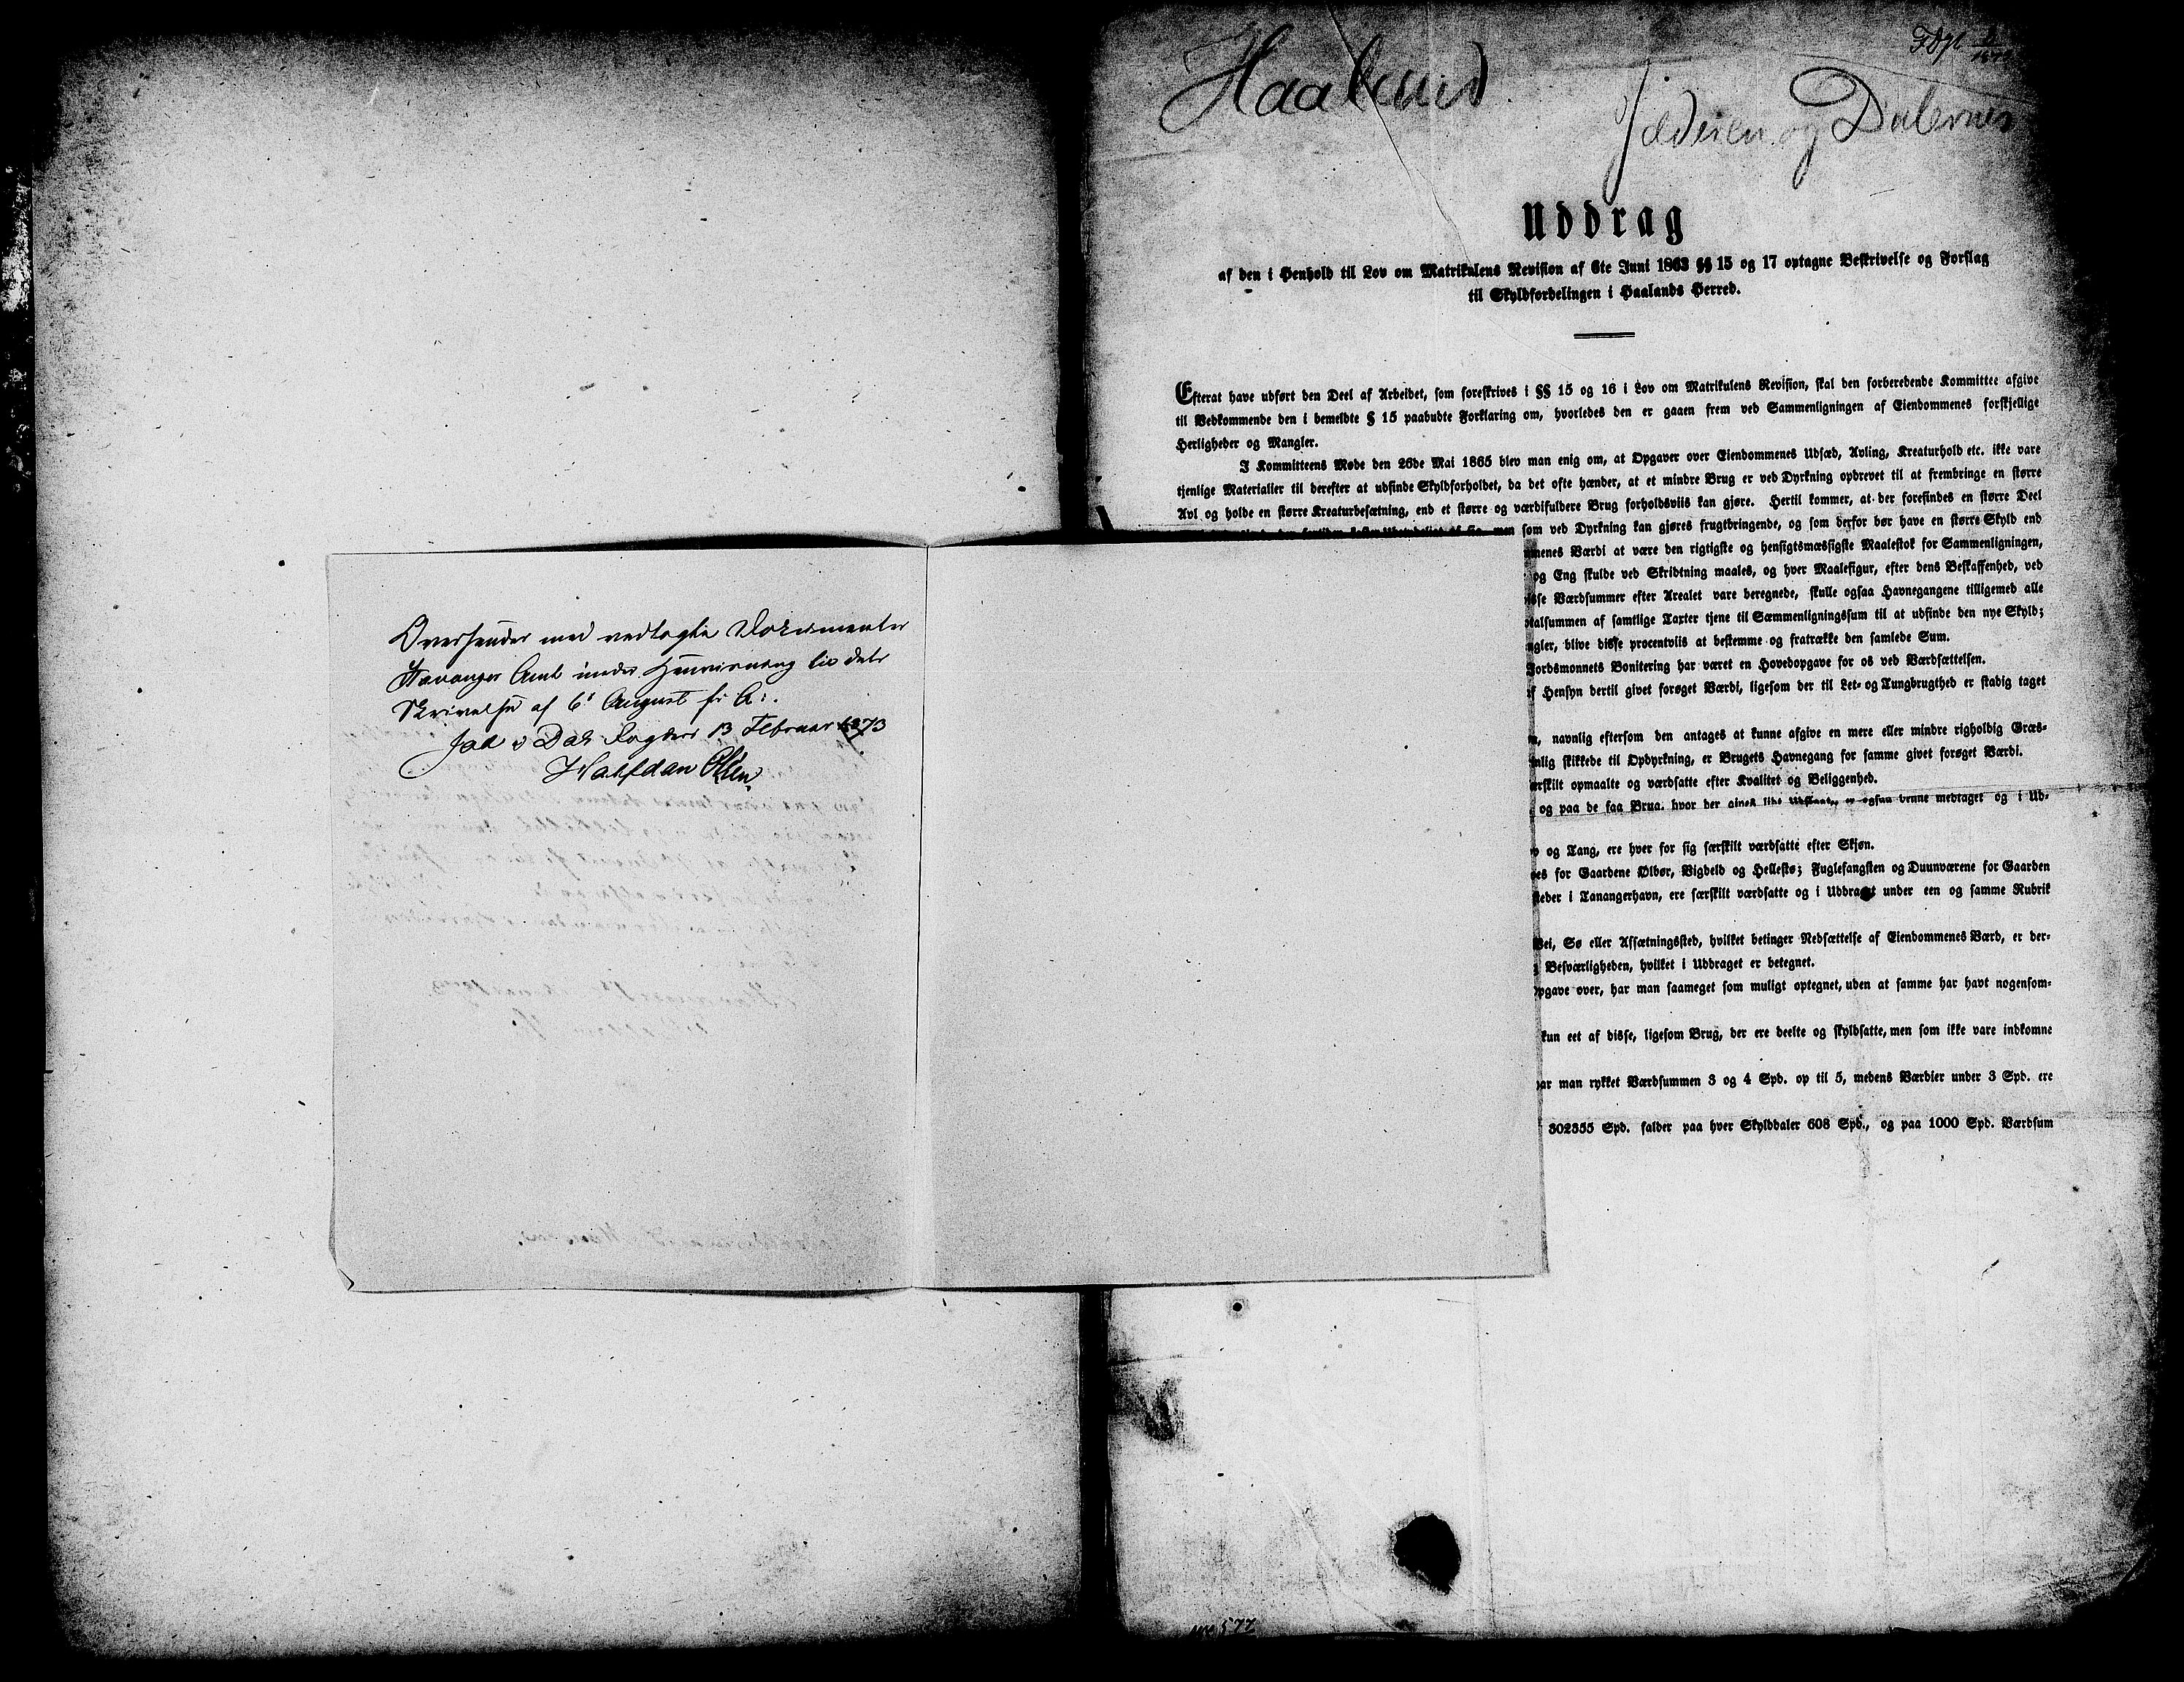 Haaland
Jæderen og Dalerne
Uddrag
af den i Henhold til Lov om Matrikulens Revision af 6te Juni 1863 §§ 15 og 17 optagne Beskrivelse og Forslag
til Skyldfordelingen i Haalands Herred.
Efterat have udført den Deel af Arbeidet, som foreskrives i §§ 15 og 16 i Lov om Matrikulens Revision, skal den forberedende Kommittee afgive
til Vedkommende den i bemeldte § 15 paabudte Forklaring om, hvorledes den er gaaen frem ved Sammenligningen af Eiendommenes forskjellige
Herligheder og Mangler.
I Kommitteens Møde den 26de Mai 1865 blev man enig om, at Opgaver over Eiendommenes Udsæd, Avling, Kreaturhold etc. ikke vare
tjenlige Materialier til derefter at udfinde Skyldforholdet, da det ofte hænder, at et mindre Brug er ved Dyrkning opdrevet til at frembringe en større
Avl og holde en større Kreaturbesætning, end et større og værdifuldere Brug forholdsviis kan gjøre. Hertil kommer, at der forefindes en større Deel
men som ved Dyrkning kan gjøres frugtbringende, og som derfor bør have en større Skyld end
menes Værdi at være den rigtigste og hensigtsmæssigste Maalestok for Sammenligningen,
og Eng skulde ved Skridtning maales, og hver Maalefigur, efter dens Beskaffenhed, ved
isse Værdsummer efter Arealet vare beregnede, skulle ogsaa Havnegangene tilligemed alle
otalsummen af samtlige Taxter tjene til Sammenligningssum til at udfinde den nye Skyld;
ngler, blive disse procentviis at bestemme og fratrække den samlede Sum.
Jordsmonnets Bonitering har været en Hovedopgave for os ved Værdsættelsen.
f Hensyn dertil givet forøget Værdi, ligesom der til Let- og Tungbrugthed er stadig taget
n, navnlig eftersom den antages at kunne afgive en mere eller mindre righoldig Græs-
nlig skikkede til Opdyrkning, er Brugets Havnegang for samme givet forøget Værdi.
ærskilt opmaalte og værdsatte efter Kvalitet og Beliggenhed.
og paa de faa Brug, hvor der gives lidt er ogsaa denne medtaget og i Ud-
v og Tang, ere hver for sig særskilt værdsatte efter Skjøn.
es for Gaardene Ølbør, Vigdeld og Hellestø; Fuglefangsten og Duunværene for Gaarden
steder i Tanangerhavn, ere særskilt værdsatte og i Uddraget under een og samme Rubrik
Vei, Sø eller Afsætningssted, hvilket betinger Nedsættelse af Eiendommenes Værd, er der-
Besværligheden, hvilket i Uddraget er betegnet.
pgave over, har man saameget som muligt optegnet, uden at samme har havt nogensom-
kun eet af disse, ligesom Brug, der ere deelte og skyldsatte, men som ikke vare indkomne
har man rykket Værdsummen 3 og 4 Spd. op til 5, medens Værdier under 3 Spd. ere
302355 Spd. falder paa hver Skylddaler 608 Spd., og paa 1000 Spd. Værdsum
Oversendes med vedlagte Dokumenter
Stavanger Amt under Henvisning til dets
Skrivelse af 6t August f: A:.
Jæd & Dal Fogderi 13 Februar 1873
Halfdan Olsen
577